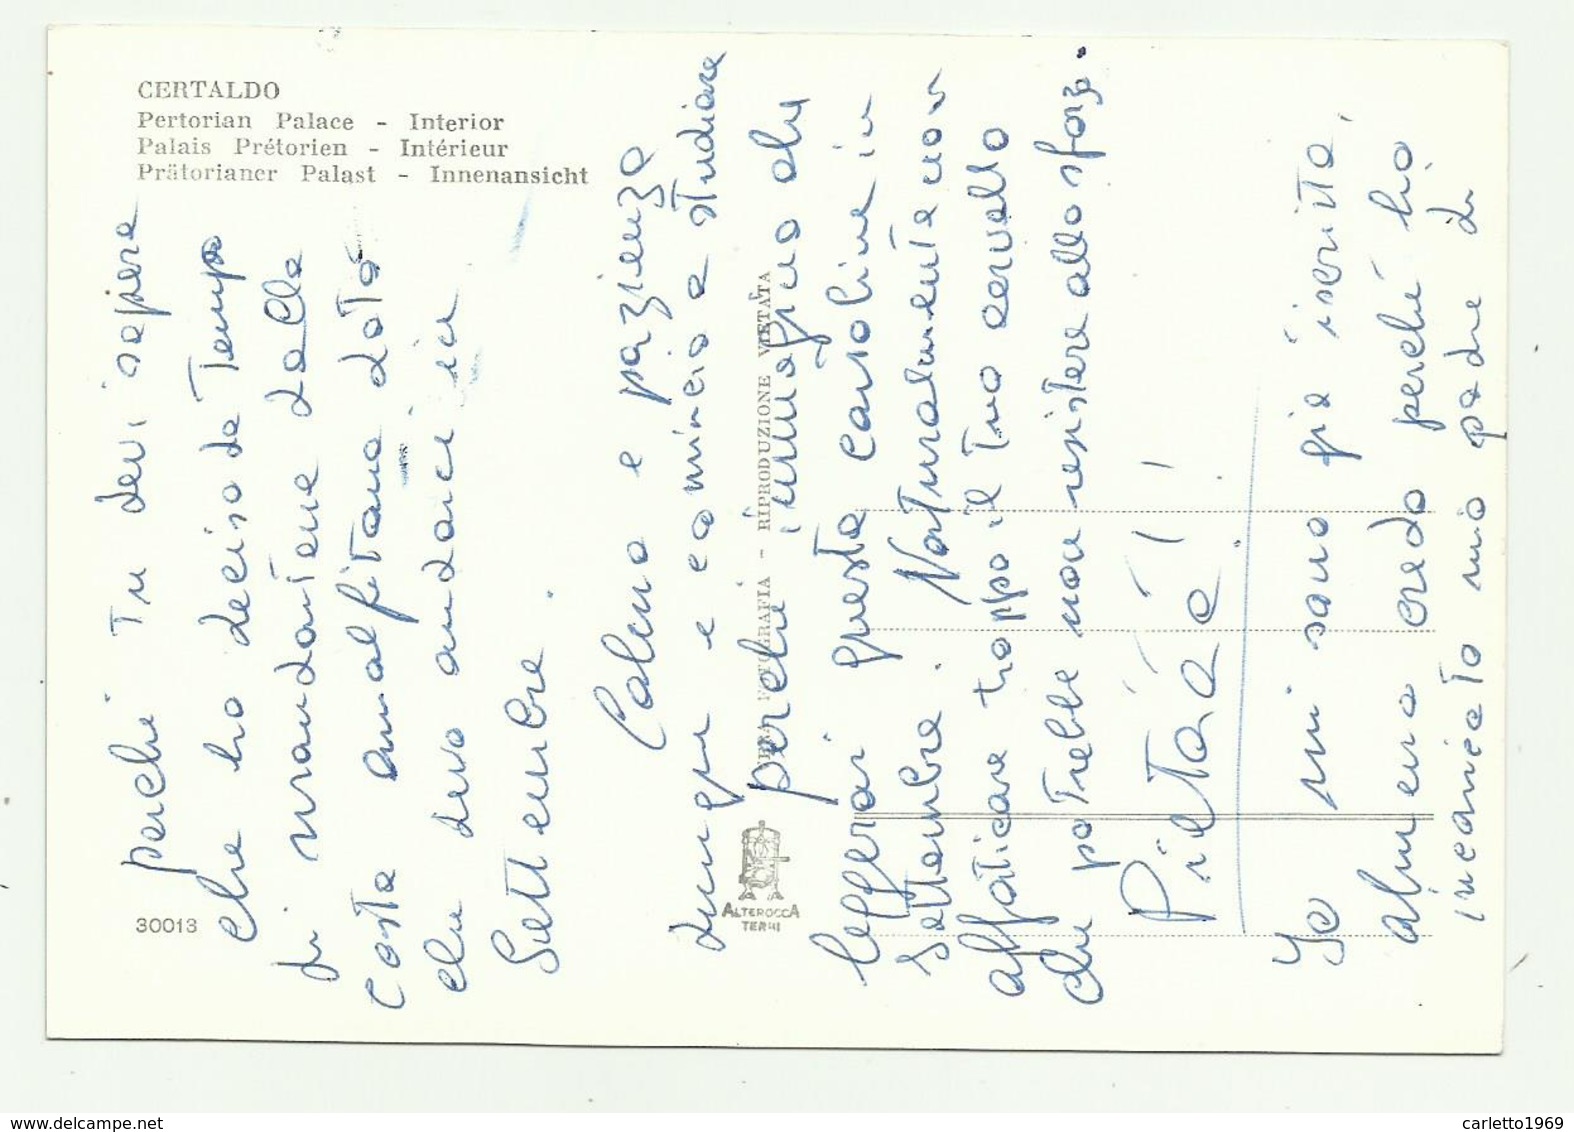 CERTALDO
Pertorian Palace - Interior
Palais Prétorien - Intérieur
Prätorianer Palast - Innenansicht
30013
ALTEROCCA
TERNI
VERA FOTOGRAFIA - RIPRODUZIONE VIETATA
perché Tu devi sapere
che ho deciso da Tempo
di mandartene dalla
costa amalfitana dato
che devo andarci in
Settembre.
Calma e pazienza
dunque e comincia a studiare
perché immagino che
leggerai queste cartoline in
Settembre. Naturalmente non
affaticare troppo il Tuo cervello
che potrebbe non resistere allo sforzo.
Pietàaà é!!
Io mi sono già iscritta,
almeno credo perché ho
incaricato mio padre di
carletto1969